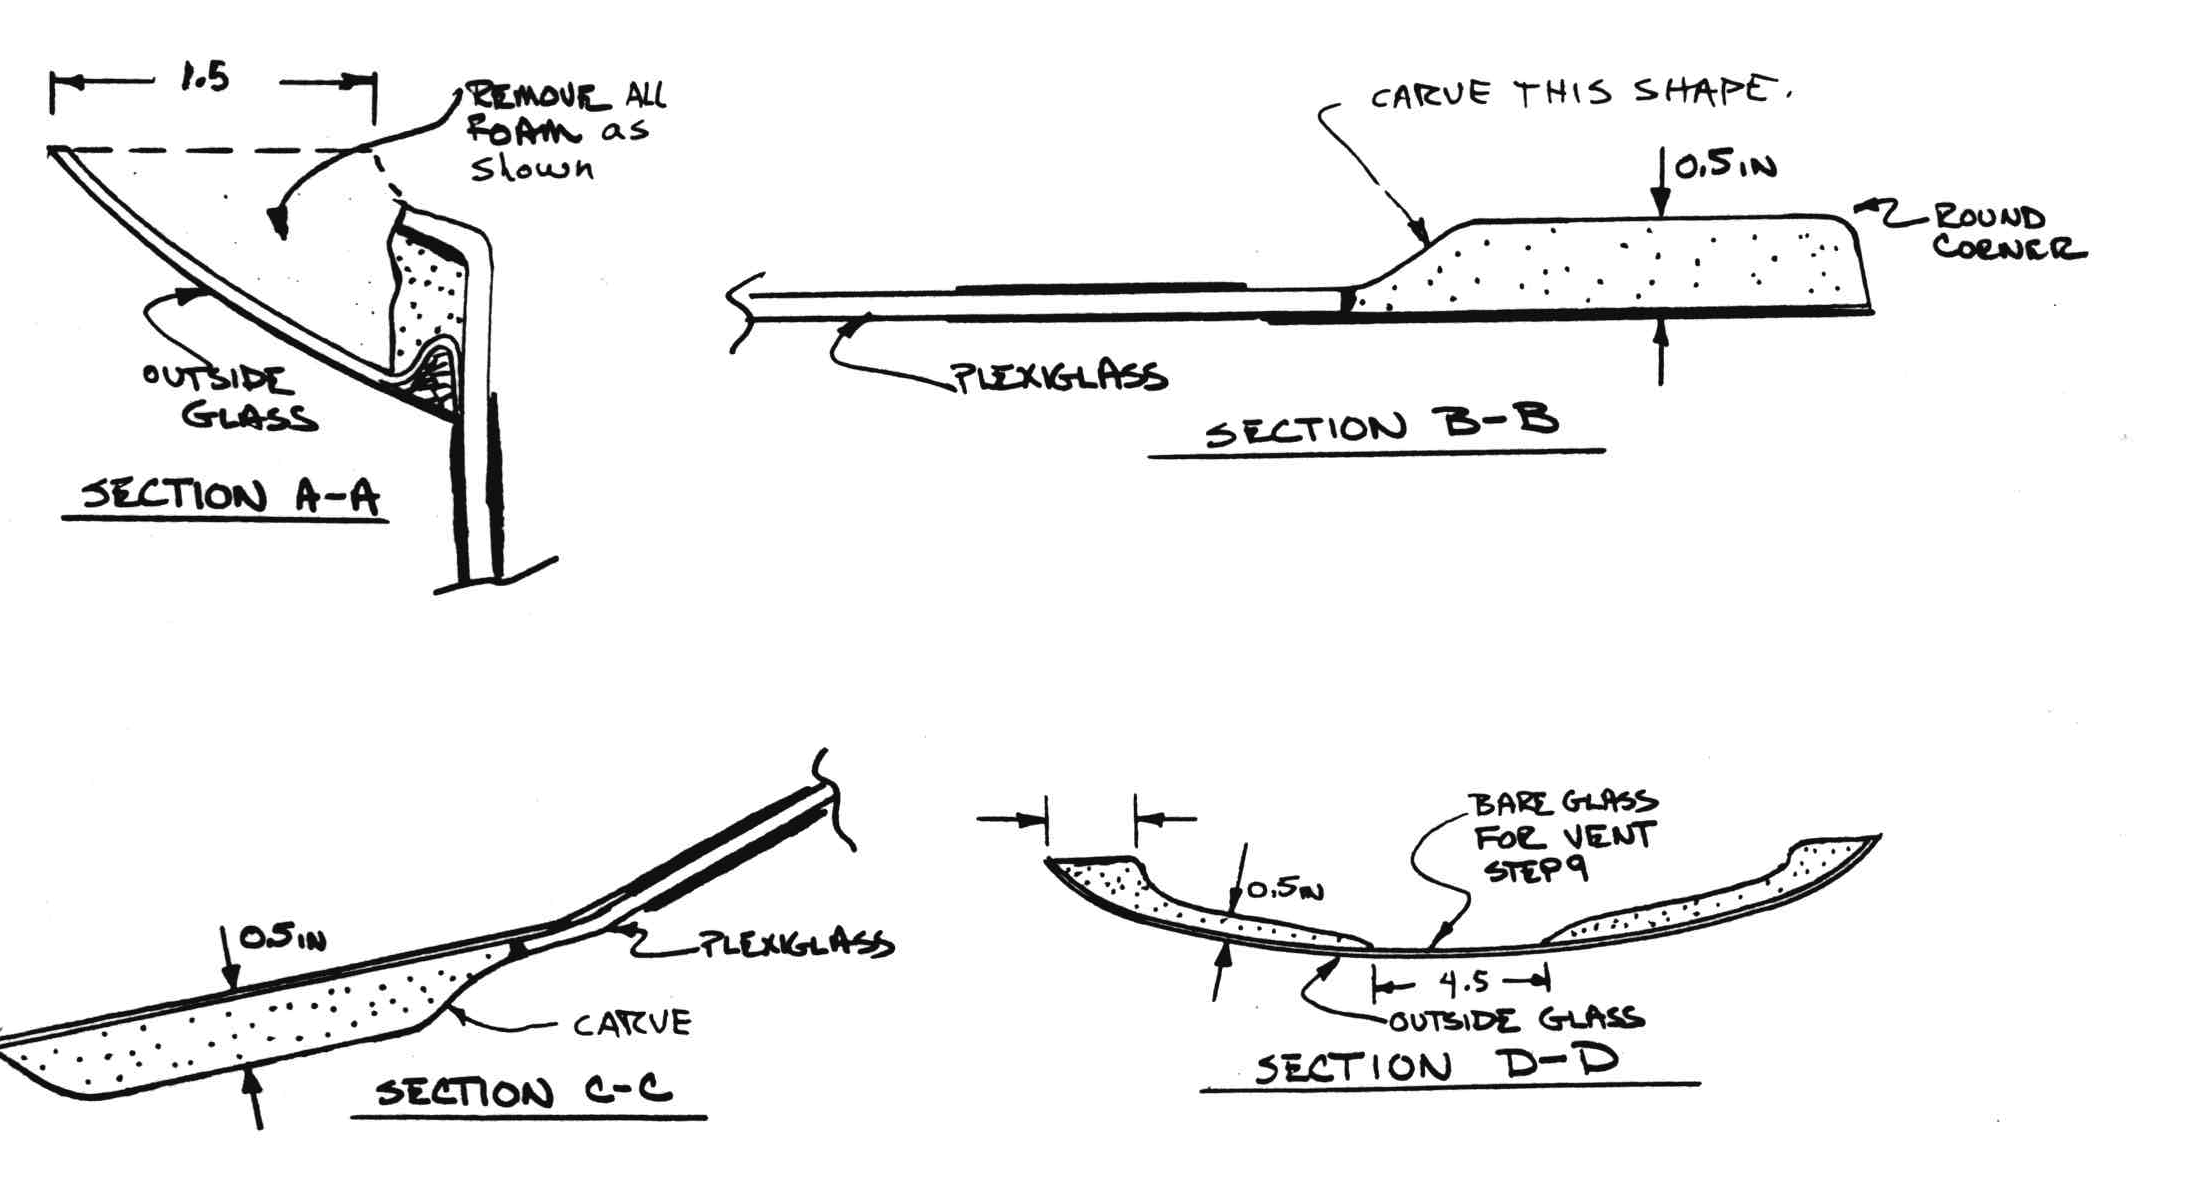 1.5
REMOVE ALL
FOAM as
shown
OUTSIDE
GLASS
SECTION A-A
CARVE THIS SHAPE.
0.5 IN
ROUND
CORNER
PLEXIGLASS
SECTION B-B
0.5 IN
PLEXIGLASS
CARVE
SECTION C-C
BARE GLASS
FOR VENT
STEP 9
0.5 IN
4.5
OUTSIDE GLASS
SECTION D-D